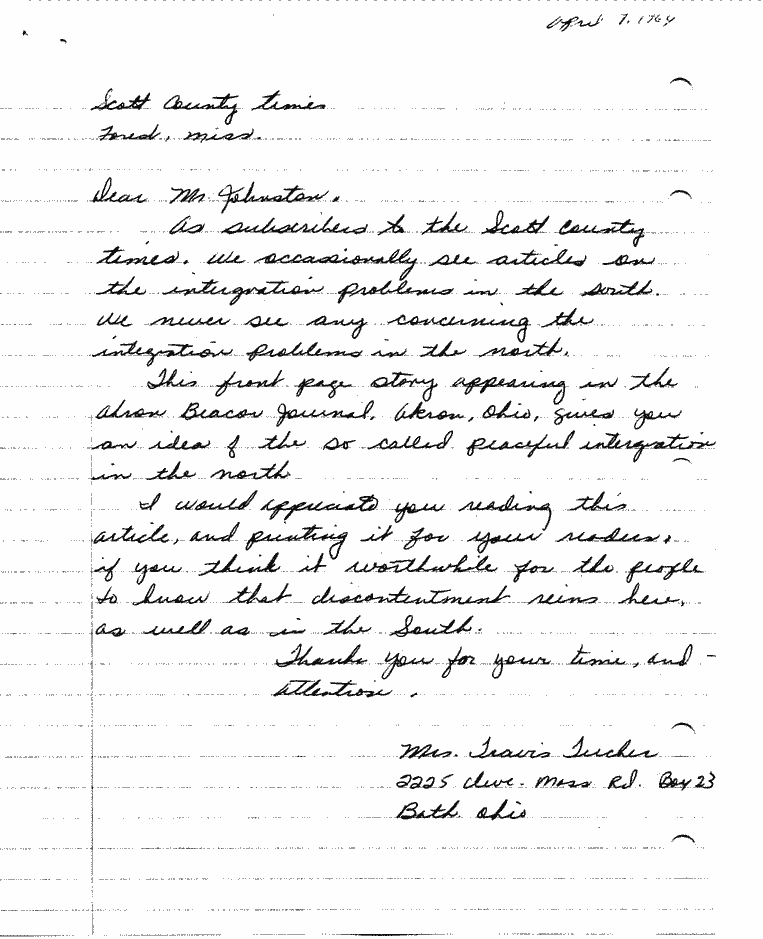 April 7, 1964
Scott County times
Forest, miss.
Dear Mr Johnston,
As subscribers to the Scott County
times. we occassionally see articles on
the intergration problems in the south.
We never see any concerning the
integration problems in the north.
This front page story appearing in the
Akron Beacon Journal, Akron, Ohio, gives you
an idea of the so called peaceful intergration
in the north
I would appriciate you reading this
article, and printing it for your readers,
if you think it worthwhile for the people
to know that discontentment reins here,
as well as in the South.
Thank you for your time, and -
attention.
Mrs. Travis Tucker
2225 Cleve. Mass Rd. Box 23
Bath Ohio